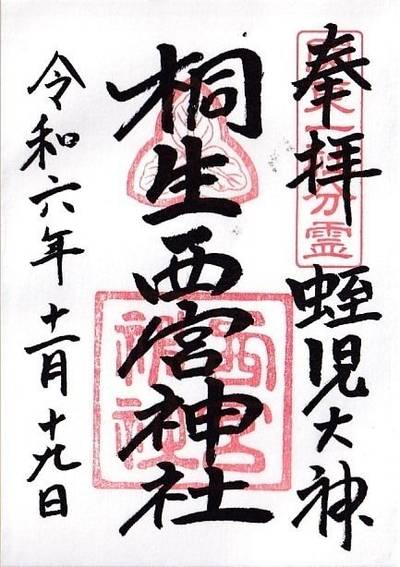 奉拝 蛭児大神
分霊
桐生西宮神社
西宮
神社
令和六年十一月十九日